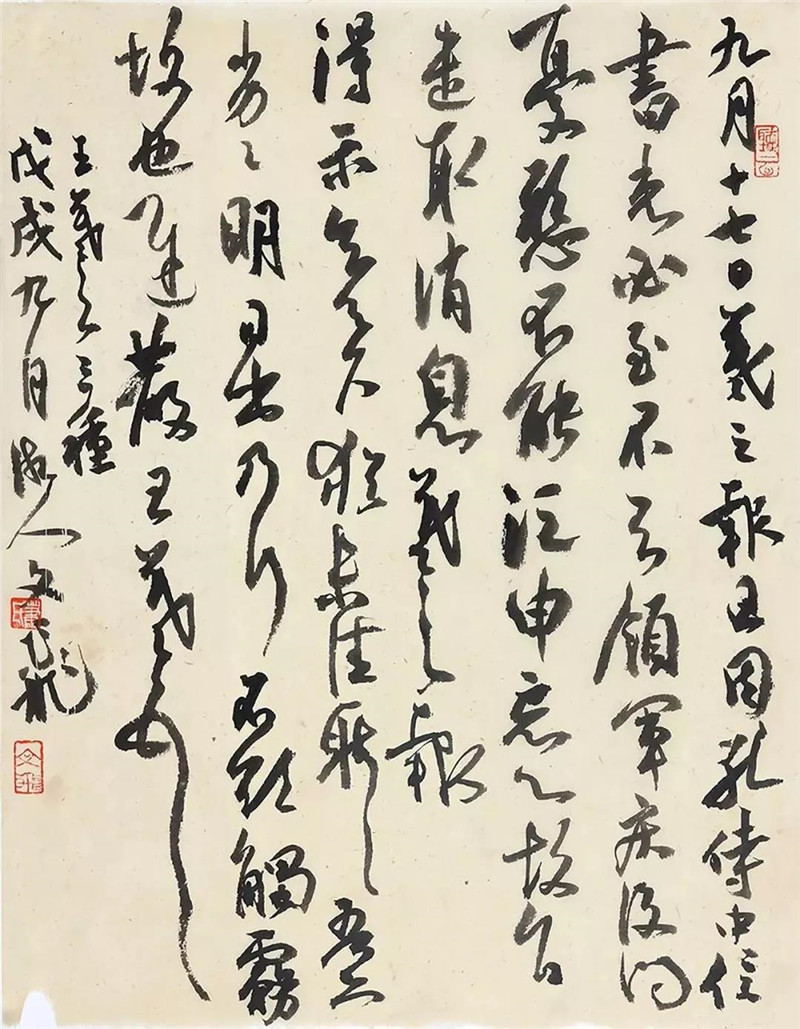 九月十七日羲之報且因孔侍中信
書想必至不知領軍疾後問
憂懸不能須臾忘心故旨
遣取消息羲之報
得示知足下猶未佳耿耿吾亦
劣劣明日出乃行不欲觸霧
故也遲散王羲之
王羲之三種
戊戌九月